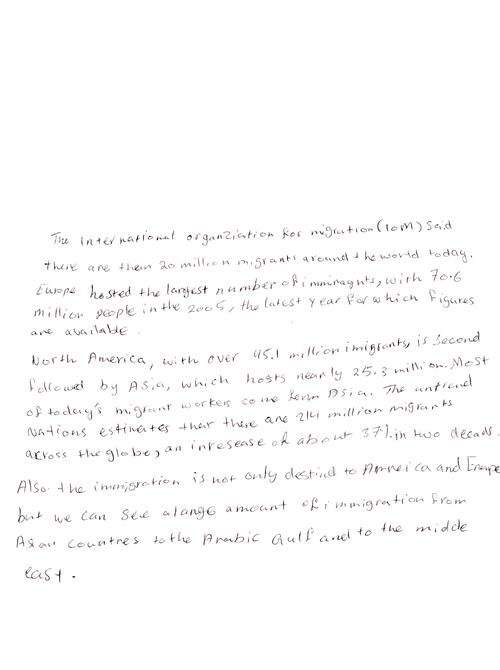 The International organziation for migration (IOM) Said
there are then 20 million migrants around the world today.
Europe hosted the largest number of immiragnts, with 70.6
million people in the 2005, the latest year for which figures
are available.
North America, with over 45.1 million imigrants, is Second
followed by Asia, which hosts nearly 25.3 million. Most
of today's migrant workers come from Asia. The untined
Nations estimates that there are 214 million migrants
across the globe, an inresease of about 37% in two decads.
Also the immigration is not only destind to Amreica and Eruope
but we can see alange amount of immigration from
Asian countres to the Arabic Gulf and to the midde
east.